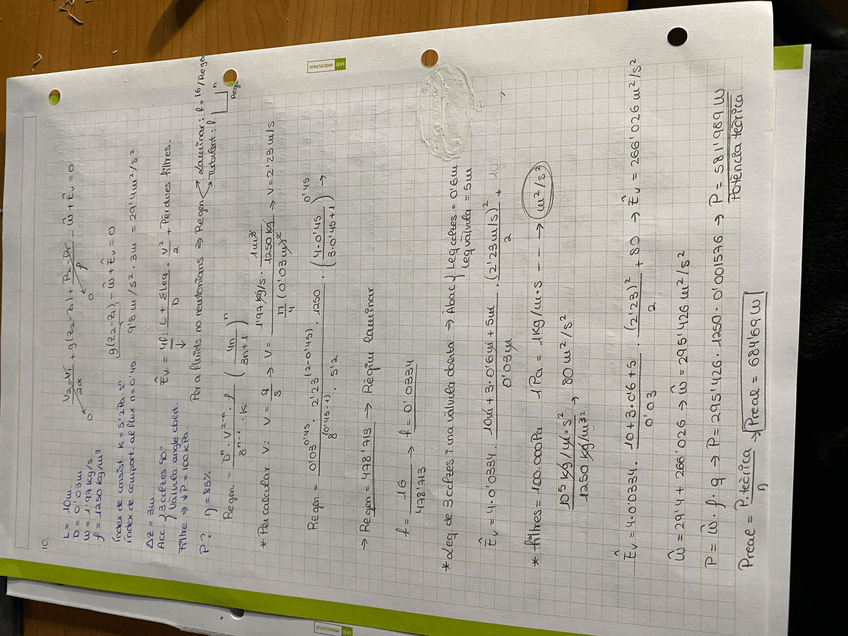 10.
L = 10m.
D = 0'03m
W = 1'97 kg/s.
ρ = 1250 kg/m³
Índex de consist. K = 5'2 Pa·sⁿ
índex de comport. al flux n = 0'45
Δz = 3m
Acc. { 3 colzes 90º
Vàlvula angle obert
Filtre ⇒ ↓P = 100kPa.
P? η = 85%
V₂²-V₁²/2α + g(z₂-z₁) + P₂-P₁/ρ - ŵ + Êv = 0
0 0
g(z₂-z₁) - ŵ + Êv = 0
9'8 m/s² · 3m = 29'4 m²/s²
Êv = 4f · L + ΣLeq/D · v²/2 + Pèrdues filtres.
Para fluids no newtonians ⇒ Regen < Laminar: f = 16/Regen
Turbulent: f
Regen = Dⁿ · V²⁻ⁿ · ρ / 8ⁿ⁻¹ · K (4n/3n+1)ⁿ
* Per calcular V: V = q/S → V = 1'97 kg/s · 1m³/1250 kg / π/4 (0'03m)² → V = 2'23 m/s
Regen = 0'03^0'45 · 2'23^(2-0'45) · 1250 / 8^(0'45-1) · 5'2 · (4·0'45/3·0'45+1)^0'45 →
→ Regen = 478'713 → Règim laminar
f = 16/478'713 → f = 0'0334
* Leq de 3 colzes i una vàlvula oberta → Àbac { Leq colzes = 0'6m
Leq vàlvula = 5m
Êv = 4·0'0334 · 10m + 3·0'6m + 5m/0'03m · (2'23m/s)²/2 + →
* filtres = 100.000Pa 1Pa = 1kg/m·s → m²/s²
10⁵ kg/m·s²/1250 kg/m³ → 80 m²/s²
Êv = 4·0'0334 · 10+3·0'6+5/0'03 · (2'23)²/2 + 80 → Êv = 266'026 m²/s²
ŵ = 29'4 + 266'026 → ŵ = 295'426 m²/s²
P = ŵ · ρ · q → P = 295'426 · 1250 · 0'001576 → P = 581'989 W
Potència teòrica
Preal = P. teòrica/η → Preal = 684'69 W